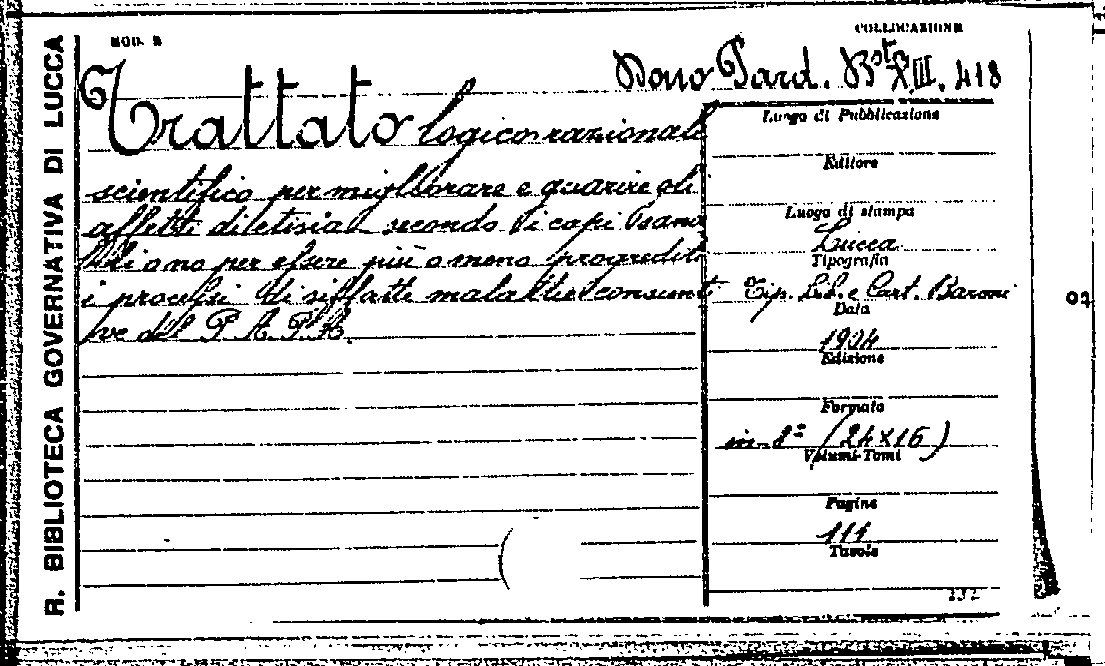 R. BIBLIOTECA GOVERNATIVA DI LUCCA
MOD. B
COLLOCAZIONE
Dono Pard. Bst XIII. 418
Trattato logico razionale
scientifico per migliorare e guarire gli
affetti di etisia secondo i capi
ono per essere più o meno progrediti
i processi di siffatte malattie
del P. A. P. B.
Luogo di Pubblicazione
Editore
Luogo di stampa
Lucca
Tipografia
Tip. Lib. e Cart. Baroni
Data
1904
Edizione
Formato
in-8º (24x16)
Volumi-Tomi
Pagine
111
Tavole